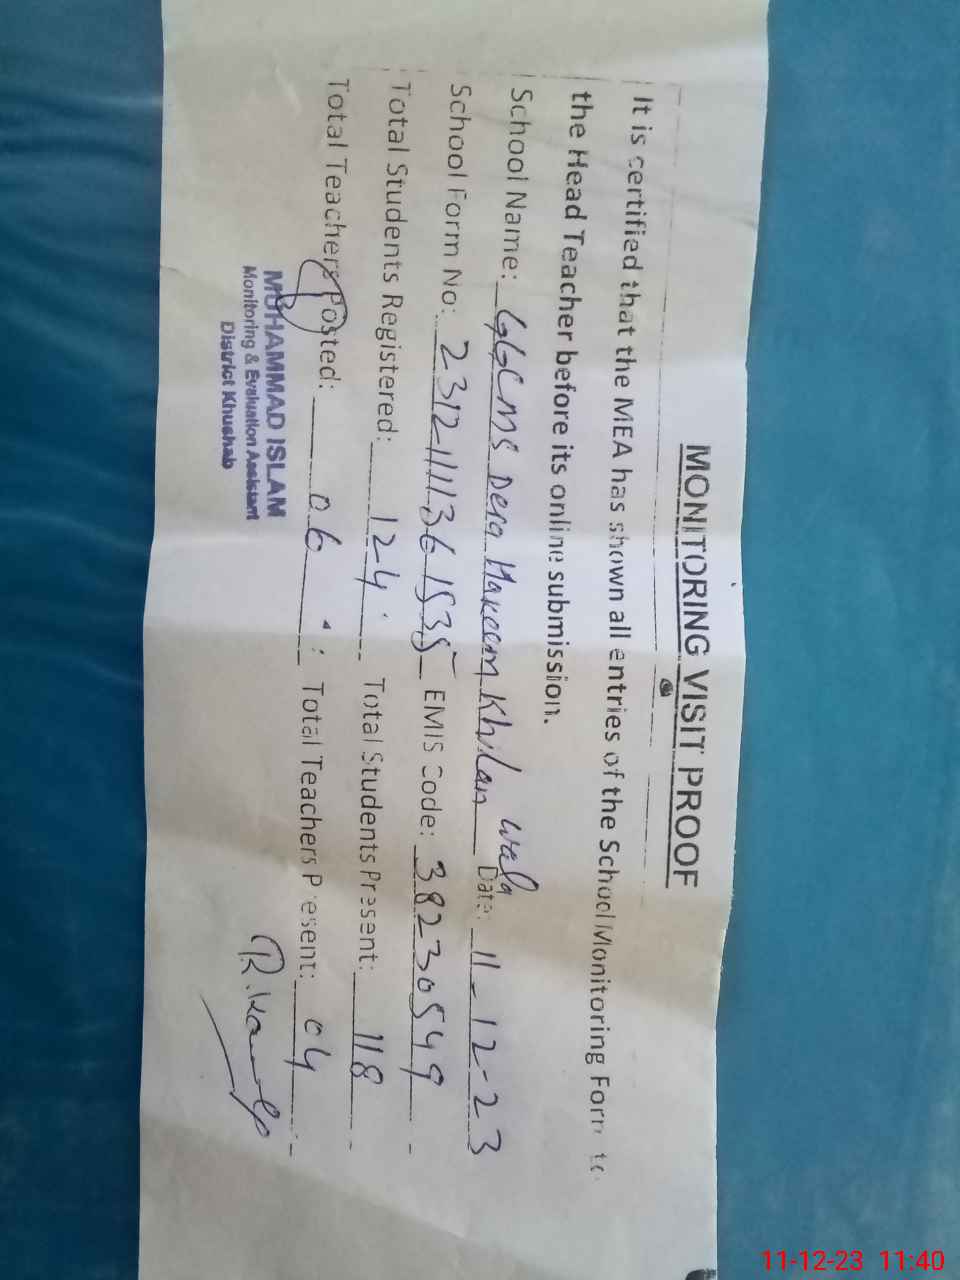 MONITORING VISIT PROOF
It is certified that the MEA has shown all entries of the School Monitoring Form to
the Head Teacher before its online submission.
School Name: GGCMS Dera Hakeem Khilan wala Date: 11-12-23
School Form No: 23121111361535 EMIS Code: 38230549
Total Students Registered: 124 Total Students Present: 118
Total Teachers Posted: 06 Total Teachers Present: 04
MUHAMMAD ISLAM
Monitoring & Evaluation Assistant
District Khushab
11-12-23 11:40